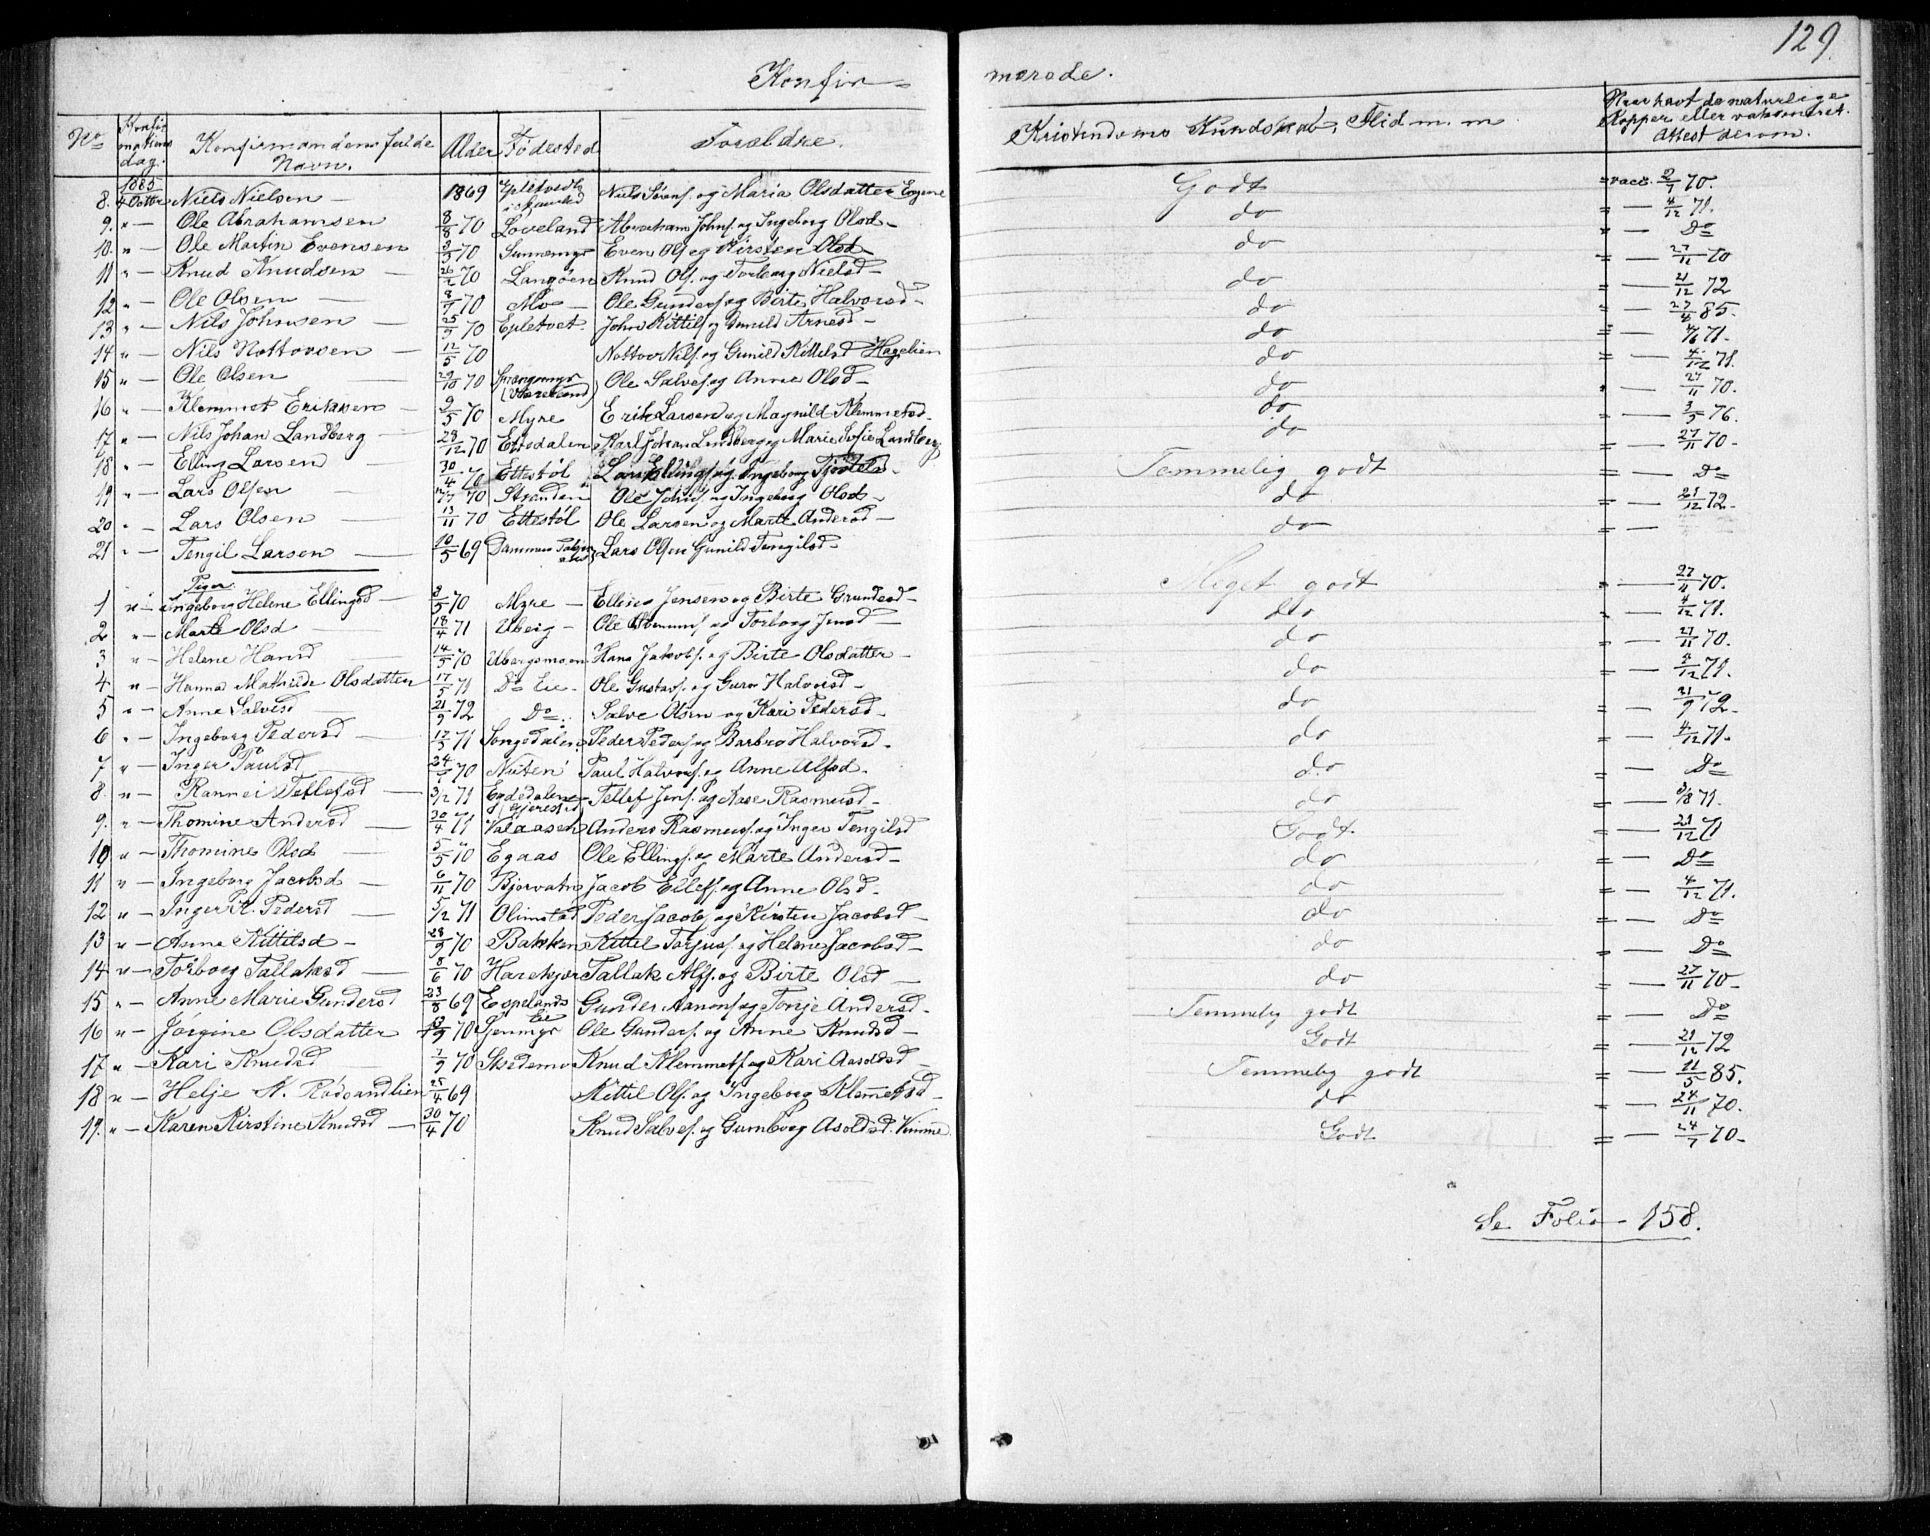 129.
Konfir=
merede.
No
Konfir
mations
dag.
Konfirmandens fulde
Navn.
Alder
Fødested
Forældre.
Kristendoms Kundskab, Flid m. m
Naar havt de naturlige
Kopper eller vaksineret.
Attest derom.
8. 1885 4 Octbr Niels Nielsen — 1869 Niels Sørens. og Maria Olsdatter Godt = vacc. 2/7 70.
9. " — Ole Abrahamsen 8/8 70 Løveland Abraham Johns. og Ingeborg Olsd — do = — 4/12 71.
10. " — Ole Martin Evensen 3/5 70 Even Ols. og Kirsten Olsd — do " — Do
11 " — Knud Knudsen — 26/2 70 Langøen Knud Ols. og Torborg Nielsd — do = — 27/11 70
12 " — Ole Olsen — 8/7 70 Mo — Ole Gunders. og Birte Halvorsd — do = — 21/12 72
13 " — Nils Johnsen — 25/9 70 Epletvet John Kittils. og Gunild Arnesd — do = — 27/4 85.
14 " — Nils Nottovsen — 12/5 70 Nottov Nils. og Gunild Kittilsd Hagelien do = — 4/6 71.
15 " — Ole Olsen — 29/10 70 Ole Salves. og Anne Olsd — do = — 4/12 71.
16 " — Klemmet Eriksen — 9/5 70 Myre Erik Larsen og Magnild Klemmetsd. do " — 27/11 70.
17 " — Nils Johan Landberg — 28/12 70 Ettedalen Karl Johan Landberg og Marie Sofie Landberg do = — 3/5 76.
18 " — Elling Larsen — 30/4 70 Ettestøl Lars Ellings. og Ingeborg Tjostelsd — Temmelig godt = — 27/11 70 —
19 " — Lars Olsen — 70 Stranden Ole Johns. og Ingeborg Olsd — do = — Do
20 " — Lars Olsen — 13/11 70 Ettestøl Ole Larsen og Marte Andersd — do = — 21/12 72.
21 " — Tengil Larsen — 10/5 69 Lars Olsen Gunild Tengilsd — = —
Piger
1 " — Ingeborg Helene Ellingsd — 2/5 70 Myre — Elling Jensen og Birte Grundesd — Meget godt " — 27/11 70.
2 " — Marte Olsd — 18/4 71 Uberg — Ole og Torborg Jensd — do " — 4/12 71.
3 " — Helene Hansd — 14/5 70 Ubergsmoen Hans Jakobs. og Birte Olsdatter — do = — 27/11 70.
4. " — Hanna Mathilde Olsdatter 17/5 71 Do Eie — Ole Gustavs. og Guro Halvorsd — do = — 4/12 71.
5 " — Anne Salvesd — 21/9 72 Do — Salve Olsen og Kari Pedersd — do = — 21/9 72 —
6 " — Ingeborg Pedersd — 12/5 71 Songedalen Peder Peders. og Barbro Halvorsd — do = — 4/12 71.
7 " — Inger Paulsd — 24/7 70 Nuten Paul Halvors. og Anne Alfsd. do = — Do
8 " — Rannei Tellefsd — 3/12 71 Tellef Jens. og Aase Rasmusd — do = — 3/8 71.
9. " — Thomine Andersd — 30/4 71 Valaasen Anders Rasmuss. og Inger Tengilsd Godt. = — 21/12 71
10 " — Thomine Olsd — 5/5 70 Egaas Ole Ellings. og Marte Andersd — do = — Do
11 " — Ingeborg Jacobsd — 6/11 70 Bjorvatn Jacob Ellefs. og Anne Olsd — do = — 4/12 71.
12 " — Inger K. Pedersd — 5/12 71 Olimstad Peder Jacobs. og Kirsten Jacobsd — do = — Do
13 " — Anne Kittilsd — 28/9 70 Bakken Kittel Torjus. og Helene Jacobsd — do = — Do
14 " — Torborg Tallaksd — 8/6 70 Harekjær Tallak Alfs. og Birte Olsd — do = — 27/11 70 —
15 " — Anne Marie Gundersd 23/8 69 Espelands Eie Gunder Aanons. og Tonje Andersd. Temmelig godt = — Do
16 " — Jørgine Olsdatter 13/9 70 Ole Gunders. og Anne Knudsd — Godt = — 21/12 72
17 " — Kari Knudsd — 7/9 70 Skedemo Knud Klemmets. og Kari Aasoldsd — Temmelig godt = — 11/5 85.
18 " — Helje N. Rødsandlien 25/4 69 Kittil Ols. og Ingeborg Klemmetsd — do = — 24/11 70.
19. " — Karen Kirstine Knudsd — 30/4 70 Knud Salves. og Gumborg Asoldsd. Vimme Godt = — 24/7 70 —
Se Folio — 158.